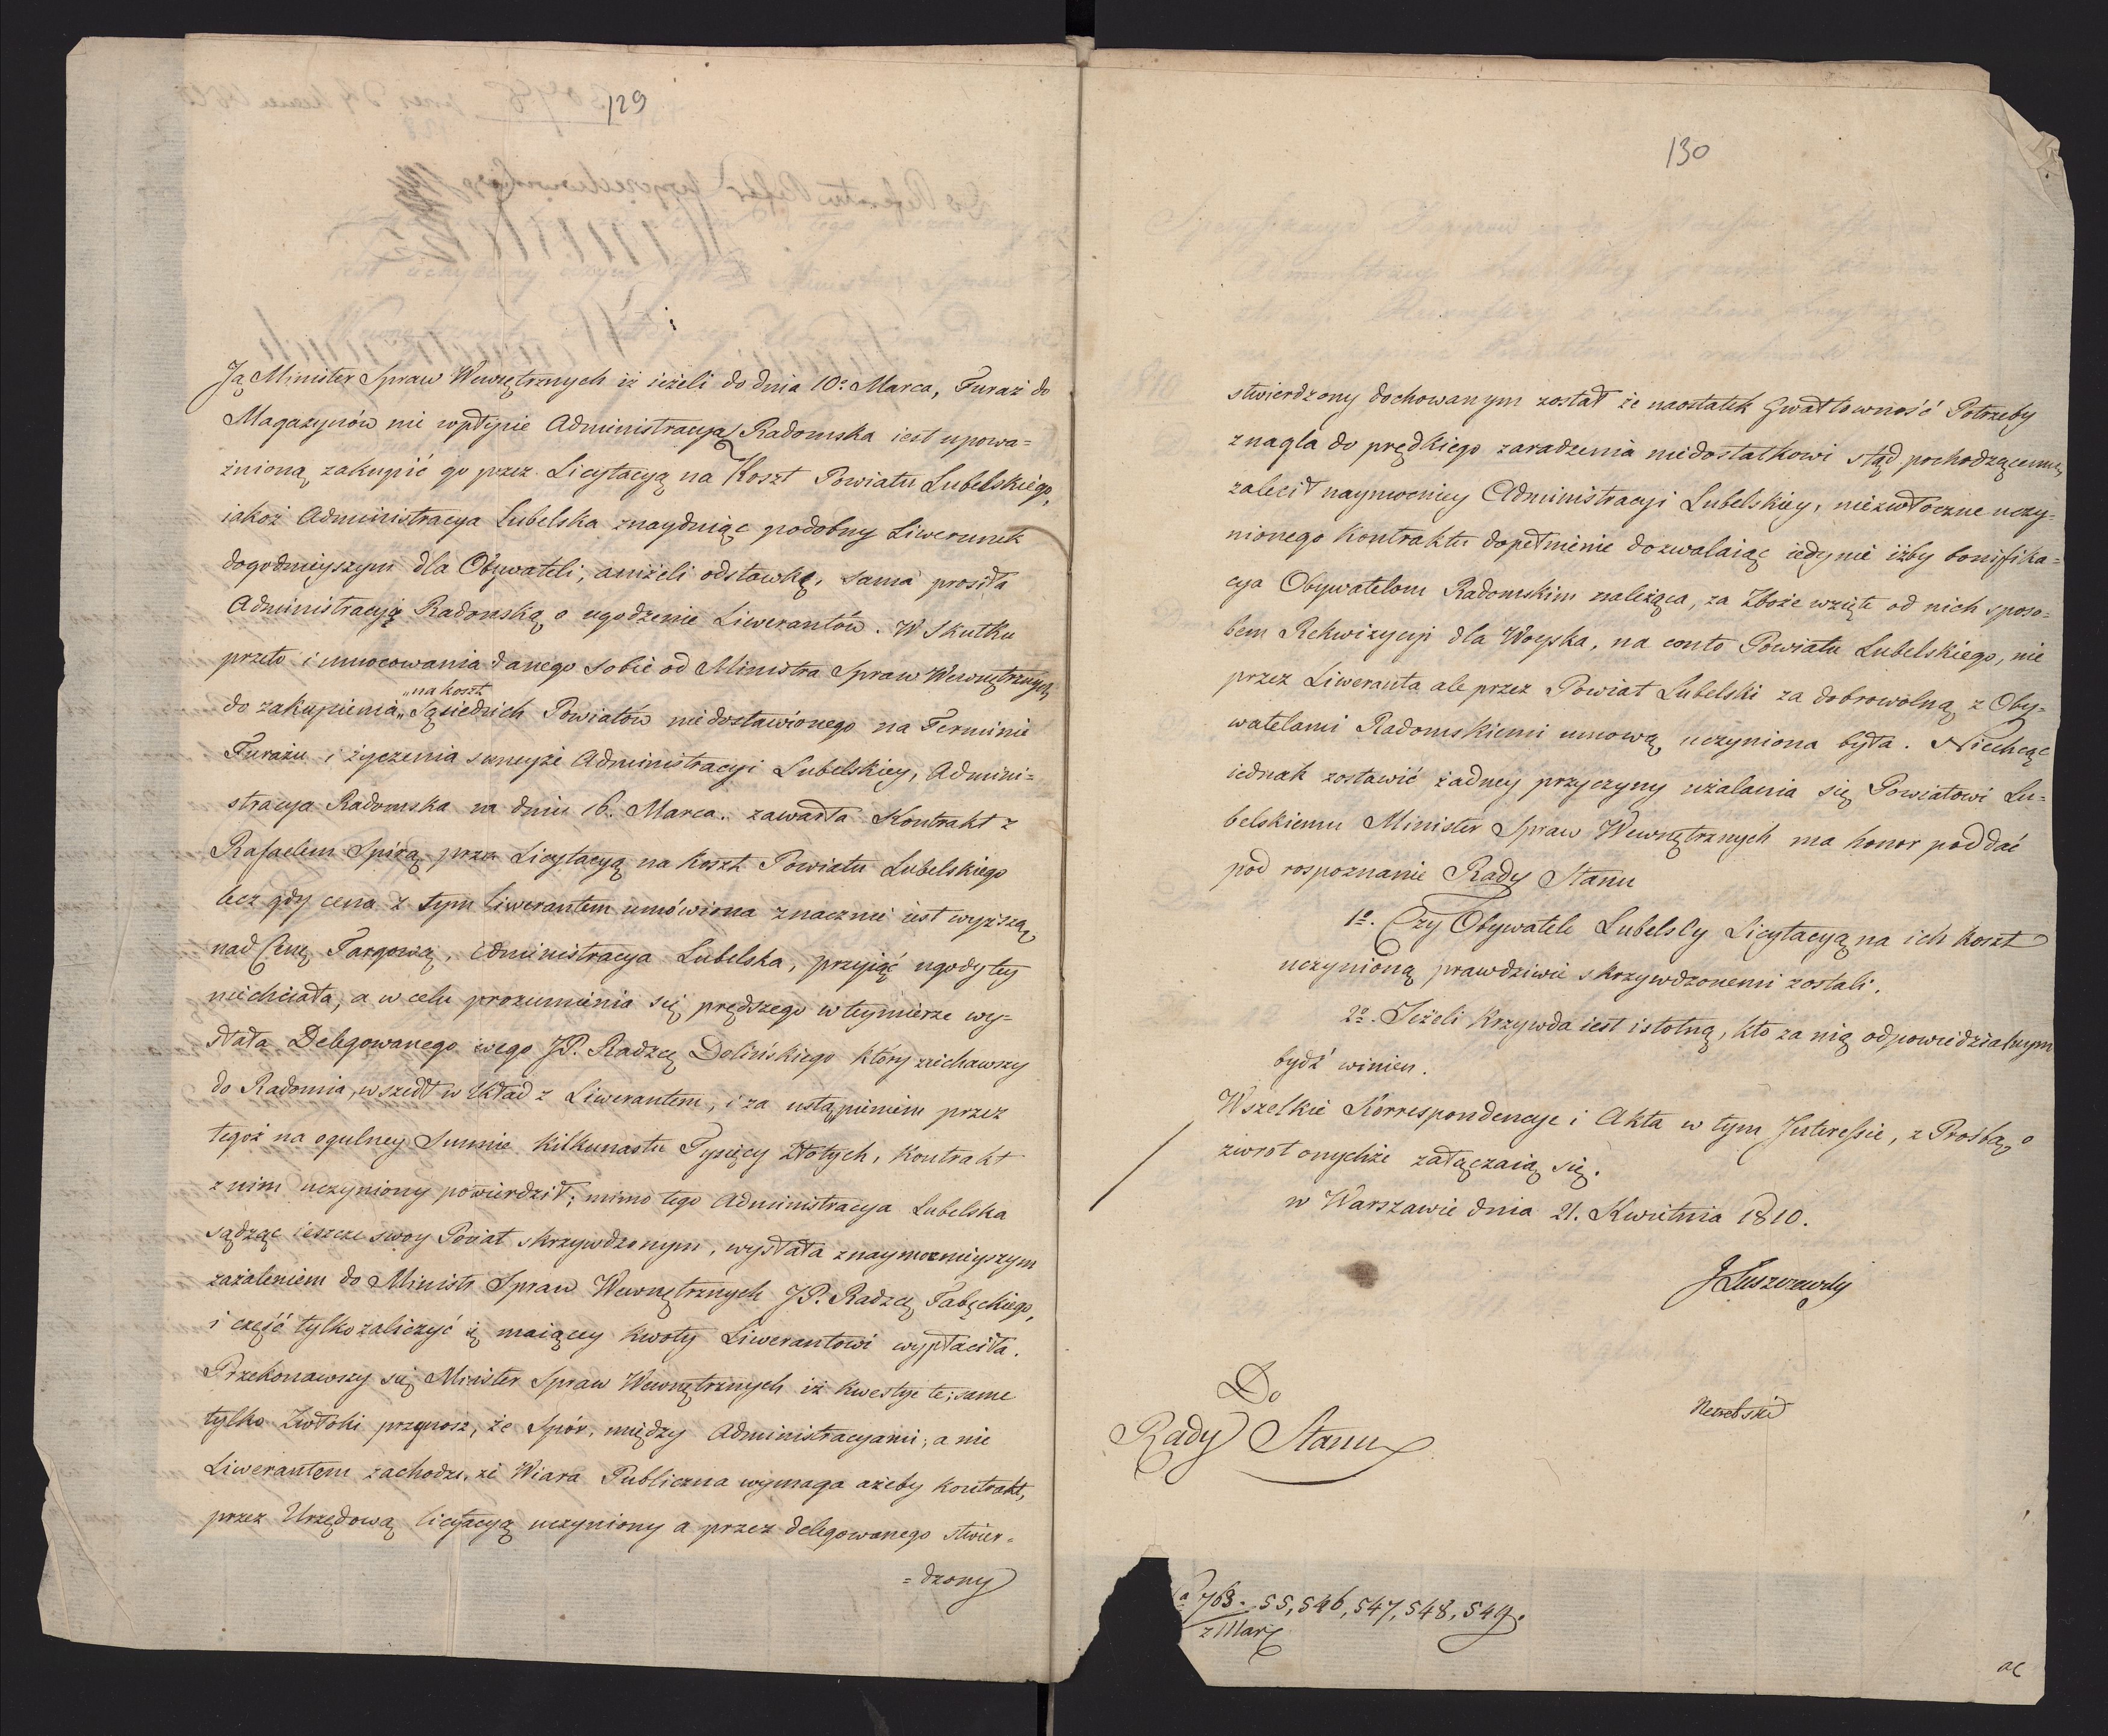 129
Ją Minister Spraw Wewnętrznych iż ieżeli do dnia 10º Marca, Furaż do
Magazynów nie wpłynie Administracya Radomska iest upowa=
żnioną zakupić go przez Licytacyą na Koszt Powiatu Lubelskiego,
iakoż Administracya Lubelska znayduiąc podobny Liwerunek
dogodnieyszym dla Obywateli, aniżeli odstawkę, sama prosiła
Administracyją Radomską o ugodzenie Liwerantów. W Skutku
przeto i umocowania danego sobie od Ministra Spraw Wewnętrznych
„na koszt
do zakupienia „ Sąsiednich Powiatów niedostawionego na Terminie
Furażu i życzenia samejże Administracyi Lubelskiey, Admini=
stracya Radomska na dniu 16. Marca. zawarła Kontrakt z
Rafaelem Spirą przez Licytacyą na koszt Powiatu Lubelskiego
lecz gdy cena z tym Liwerantem umówiona znacznie iest wyższą
nad Cenę Targową, Administracya Lubelska, przyiąć ugody tey
niechciała, a w celu prozumienia się prędszego w teymierze wy=
słała Delegowanego swego JP. Radzcę Dolińskiego który ziechawszy
do Radomia, wszedł w Układ z Liwerantem, i za ustąpieniem przez
tegoż na ogulney Summie kilkunastu Tysięcy Złotych, Kontrakt
z nim uczyniony powierdził; mimo tego Administracya Lubelska
sądząc ieszcze swoy Powiat skrzywdzonym, wysłała z naymocnieyszym
zażaleniem do Ministr Spraw Wewnętrznych JP. Radzcę Tabęckiego,
i część tylko zaliczyć się maiącey kwoty Liwerantowi wypłaciła.
Przekonawszy się Minister Spraw Wewnętrznych iż kwestye te, same
tylko Zwłoki przynosz, że Spór, między Administracyami, a nie
Liwerantem zachodzi, że Wiara Publiczna wymaga ażeby kontrakt,
przez Urzędową licytacyą uczyniony a przez delegowanego stwier=
=dzony
130
stwierdzony dochowanym został że naostatek Gwałtowność Potrzeby
znagla do prędkiego zaradzenia niedostatkowi stąd pochodzącemu,
zalecił naymocniey Administracyi Lubelskiey, niezwłoczne uczy=
nionego Kontraktu dopełnienie dozwalaiąc iedynie iżby bonifika=
cya Obywatelom Radomskim należąca, za Zboże wzięte od nich sposo=
bem Rekwizycyi dla Woyska, na conto Powiatu Lubelskiego, nie
przez Liweranta ale przez Powiat Lubelski za dobrowolną z Oby=
watelami Radomskiemi umową, uczyniona była. Niechcąc
iednak zostawić żadney przyczyny użalania się Powiatowi Lu=
belskiemu Minister Spraw Wewnętrznych ma honor poddać
pod rospoznanie Rady Stanu
1º. Czy Obywatele Lubelscy Licytacyą na ich koszt
uczynioną prawdziwie skrzywdzonemi zostali.
2º. Jeżeli Krzywda iest istotną, kto za nią odpowiedzialnym
bydź winien.
Wszelkie Korrespondencye i Akta w tym Jnteressie, z Prośbą o
zwrot onychże załączaią się.
w Warszawie dnia 21. Kwietnia 1810.
JŁuszczewsky
Do
Rady Stanu
763. 55, 546, 547, 548, 549.
z Marc